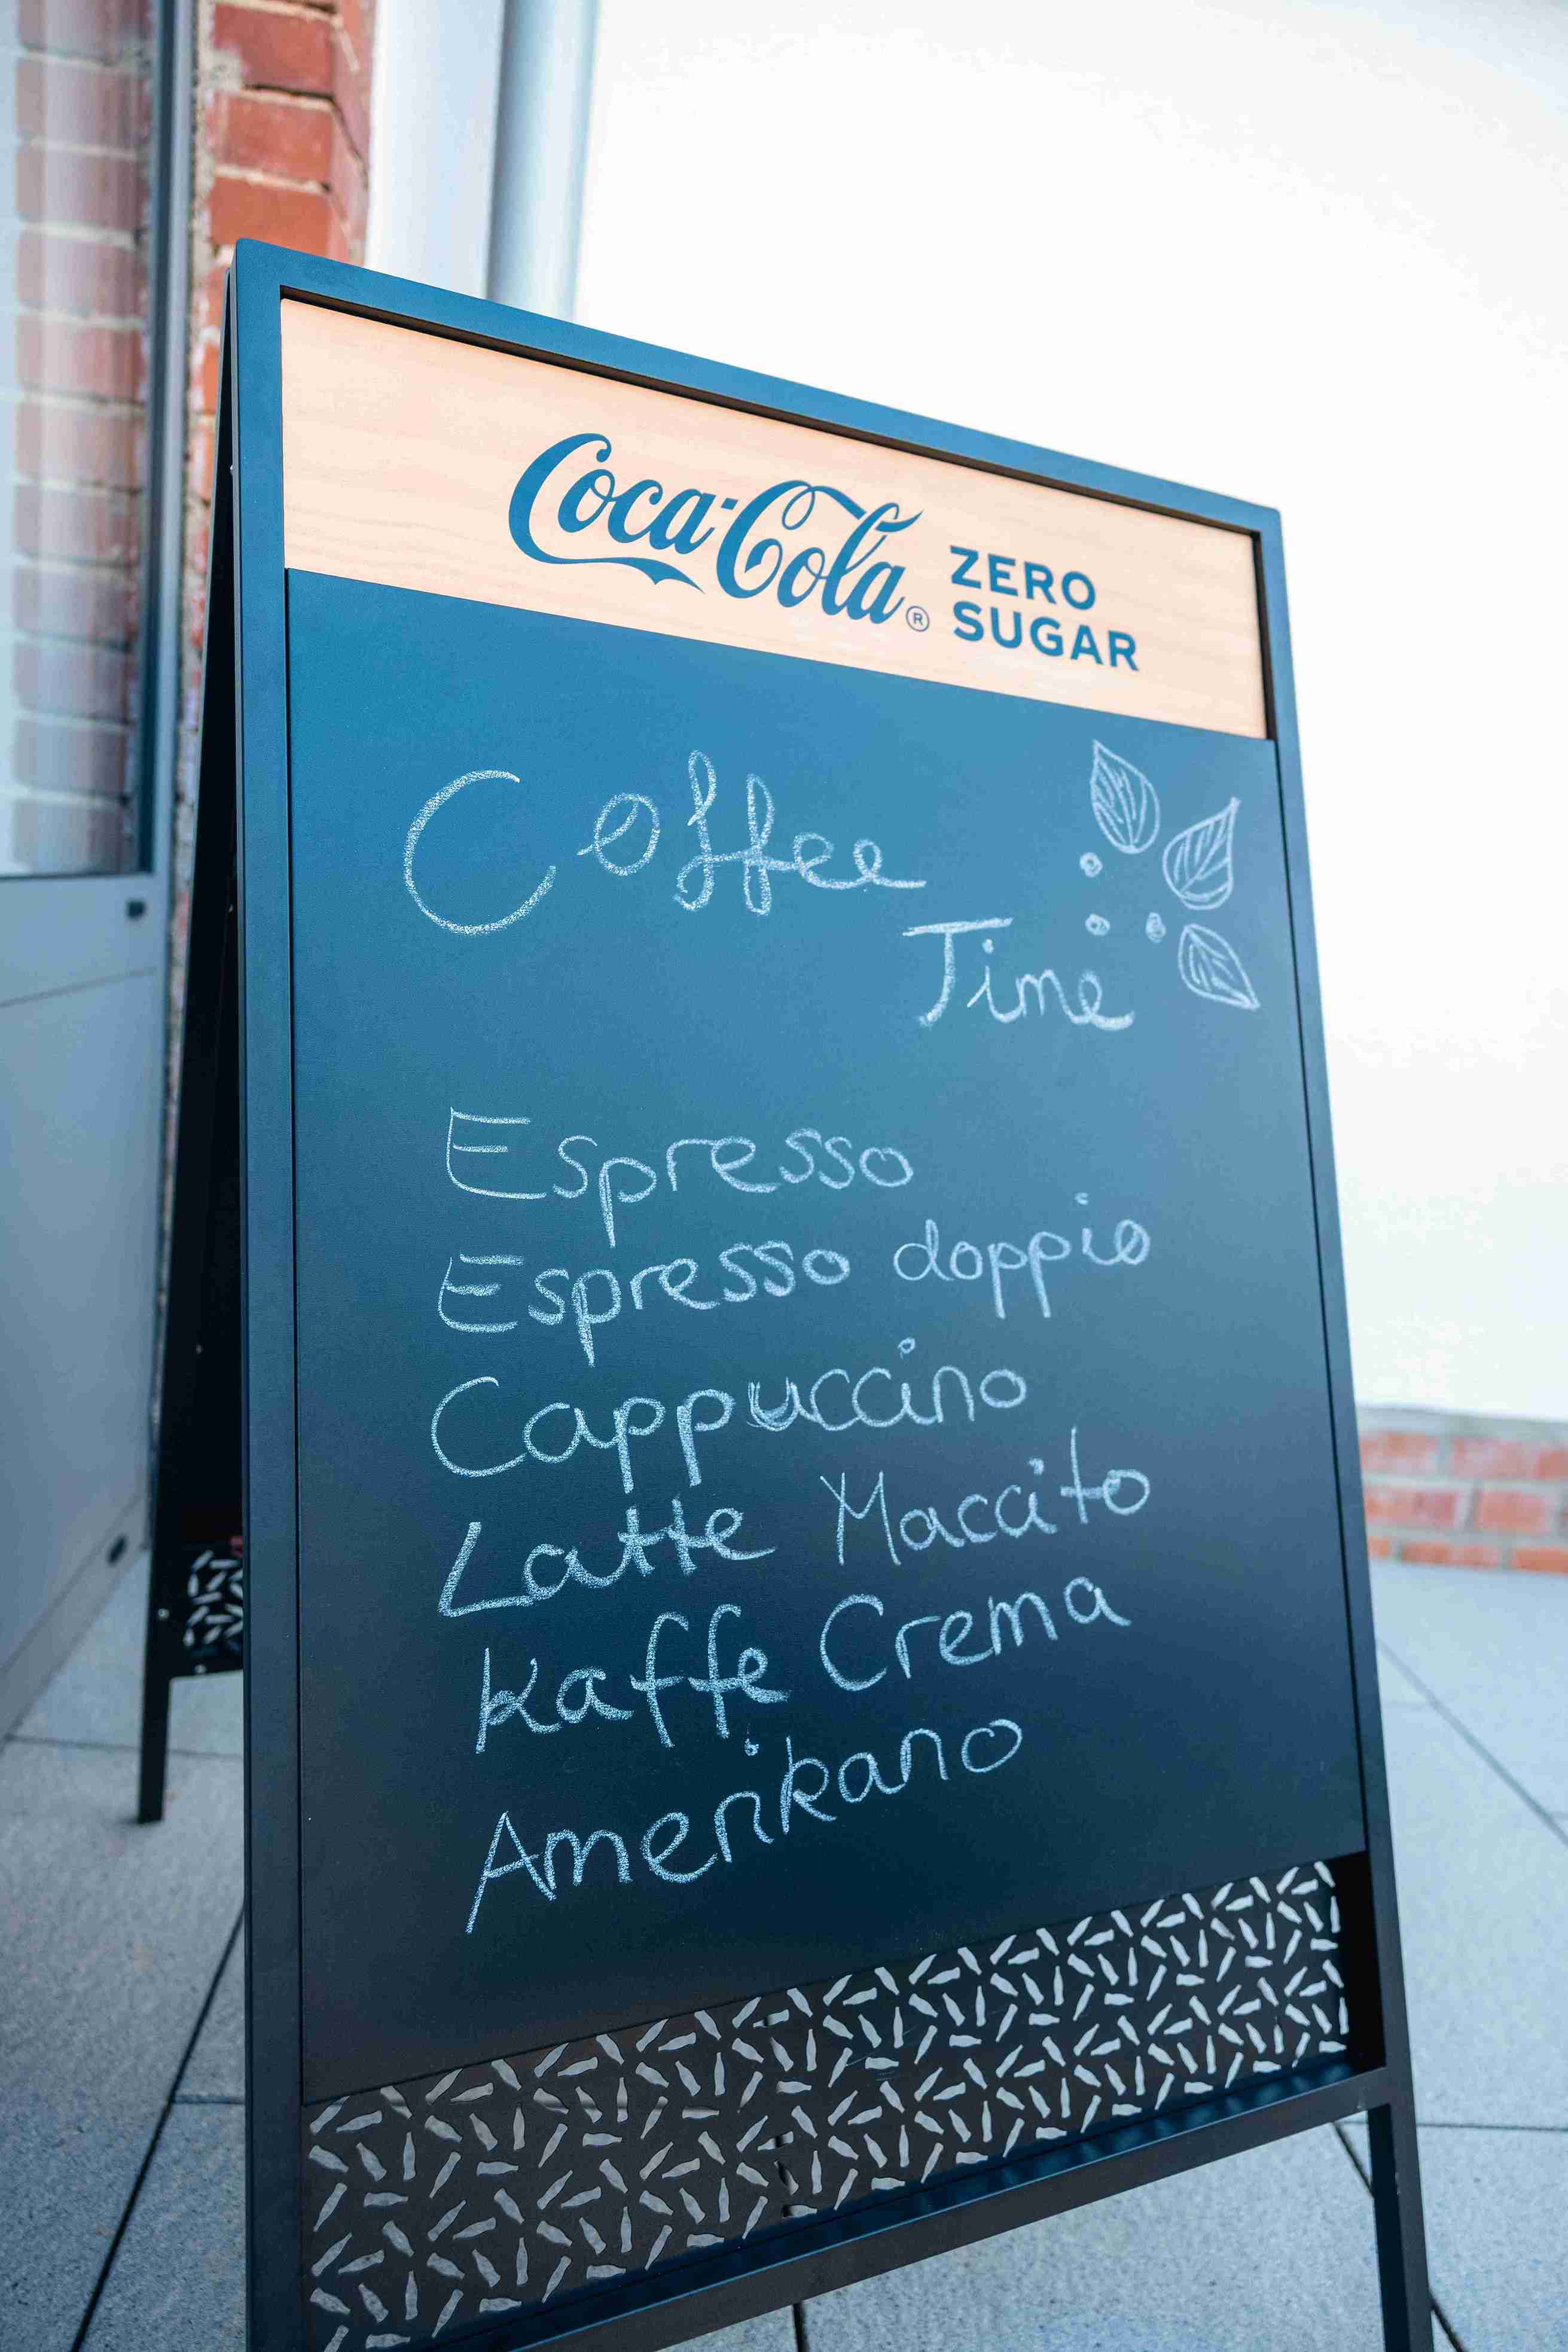 Coca-Cola® ZERO
SUGAR
Coffee
Time
Espresso
Espresso doppio
Cappuccino
Latte Maccito
Kaffe Crema
Amerikano